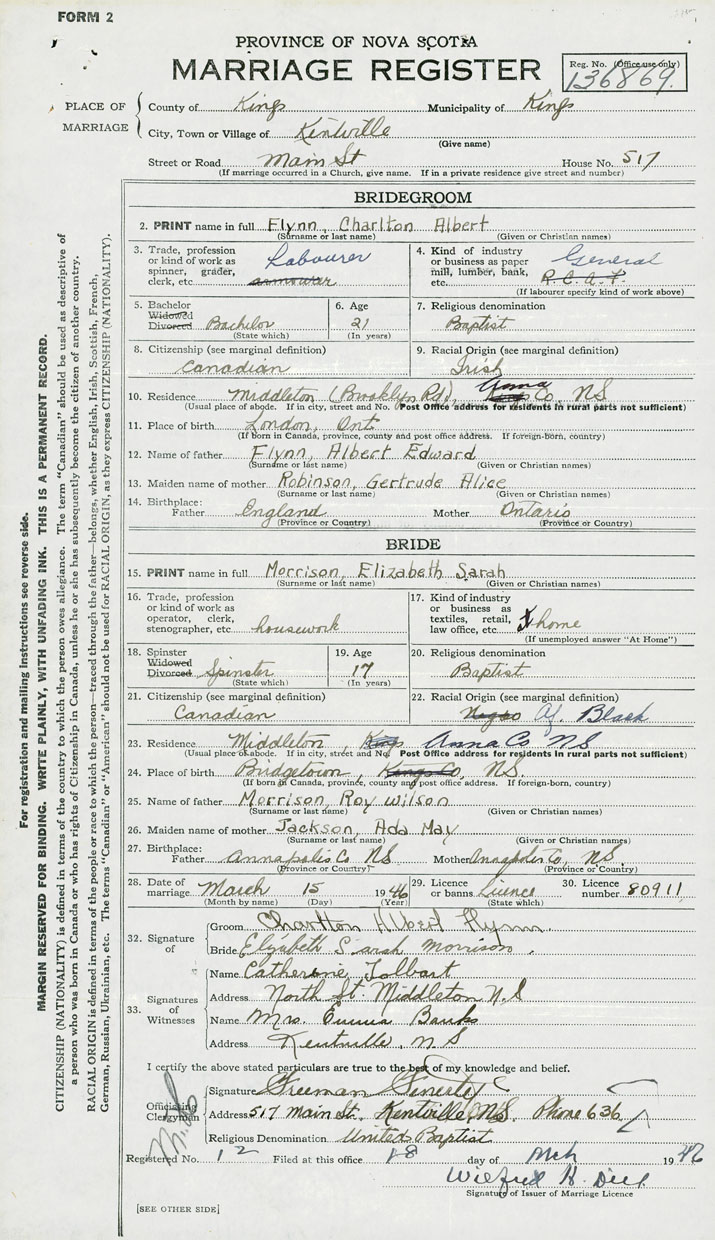 FORM 2
PROVINCE OF NOVA SCOTIA
MARRIAGE REGISTER
Reg. No. (Office use only)
136869.
PLACE OF MARRIAGE
County of Kings Municipality of Kings
City, Town or Village of Kentville
(Give name)
Street or Road Main St House No. 517
(If marriage occurred in a Church, give name. If in a private residence give street and number)
BRIDEGROOM
2. PRINT name in full Flynn, Charlton Albert
(Surname or last name) (Given or Christian names)
3. Trade, profession or kind of work as spinner, grader, clerk, etc. Labourer armourer
4. Kind of industry or business as paper mill, lumber, bank, etc. General R.C.A.F.
(If labourer specify kind of work above)
5. Bachelor Widowed Divorced Bachelor
(State which)
6. Age 21
(In years)
7. Religious denomination
Baptist
8. Citizenship (see marginal definition)
Canadian
9. Racial Origin (see marginal definition)
Irish
10. Residence Middleton (Brooklyn Rd), Anna Kings Co, NS
(Usual place of abode. If in city, street and No. Post Office address for residents in rural parts not sufficient)
11. Place of birth London, Ont
(If born in Canada, province, county and post office address. If foreign-born, country)
12. Name of father Flynn, Albert Edward
(Surname or last name) (Given or Christian names)
13. Maiden name of mother Robinson, Gertrude Alice
(Surname or last name) (Given or Christian names)
14. Birthplace: Father England Mother Ontario
(Province or Country) (Province or Country)
BRIDE
15. PRINT name in full Morrison, Elizabeth Sarah
(Surname or last name) (Given or Christian names)
16. Trade, profession or kind of work as operator, clerk, stenographer, etc housework
17. Kind of industry or business as textiles, retail, law office, etc. home
(If unemployed answer "At Home")
18. Spinster Widowed Divorced Spinster
(State which)
19. Age 17
(In years)
20. Religious denomination
Baptist
21. Citizenship (see marginal definition)
Canadian
22. Racial Origin (see marginal definition)
Negro Af. Black
23. Residence Middleton, Kings Anna Co NS
(Usual place of abode. If in city, street and No. Post Office address for residents in rural parts not sufficient)
24. Place of birth Bridgetown, Kings Co, NS.
(If born in Canada, province, county and post office address. If foreign-born, country)
25. Name of father Morrison, Roy Wilson
(Surname or last name) (Given or Christian names)
26. Maiden name of mother Jackson, Ada May
(Surname or last name) (Given or Christian names)
27. Birthplace: Father Annapolis Co NS Mother Annapolis Co, NS.
(Province or Country) (Province or Country)
28. Date of marriage March 15 1946
(Month by name) (Day) (Year)
29. Licence or banns Licence
(State which)
30. Licence number 80911
32. Signature of
Groom Charlton Albert Flynn.
Bride Elizabeth Sarah Morrison.
33. Signatures of Witnesses
Name Catherine Tolbart
Address North St. Middleton N.S
Name Mrs. Emma Banks
Address Kentville, N.S
I certify the above stated particulars are true to the best of my knowledge and belief.
Officiating Clergyman
Signature Freeman Fenerty
Address 517 Main St. Kentville, N.S. Phone 636
Religious Denomination United Baptist
Registered No. 12 Filed at this office 18 day of Mch 1946
Signature of Issuer of Marriage Licence
[SEE OTHER SIDE]
For registration and mailing instructions see reverse side.
MARGIN RESERVED FOR BINDING. WRITE PLAINLY, WITH UNFADING INK. THIS IS A PERMANENT RECORD.
CITIZENSHIP (NATIONALITY) is defined in terms of the country to which the person owes allegiance. The term "Canadian" should be used as descriptive of
a person who was born in Canada or who has rights of Citizenship in Canada, unless he or she has subsequently become the citizen of another country,
RACIAL ORIGIN is defined in terms of the people or race to which the person—traced through the father—belongs, whether English, Irish, Scottish, French,
German, Russian, Ukrainian, etc. The terms "Canadian" or "American" should not be used for RACIAL ORIGIN, as they express CITIZENSHIP (NATIONALITY).